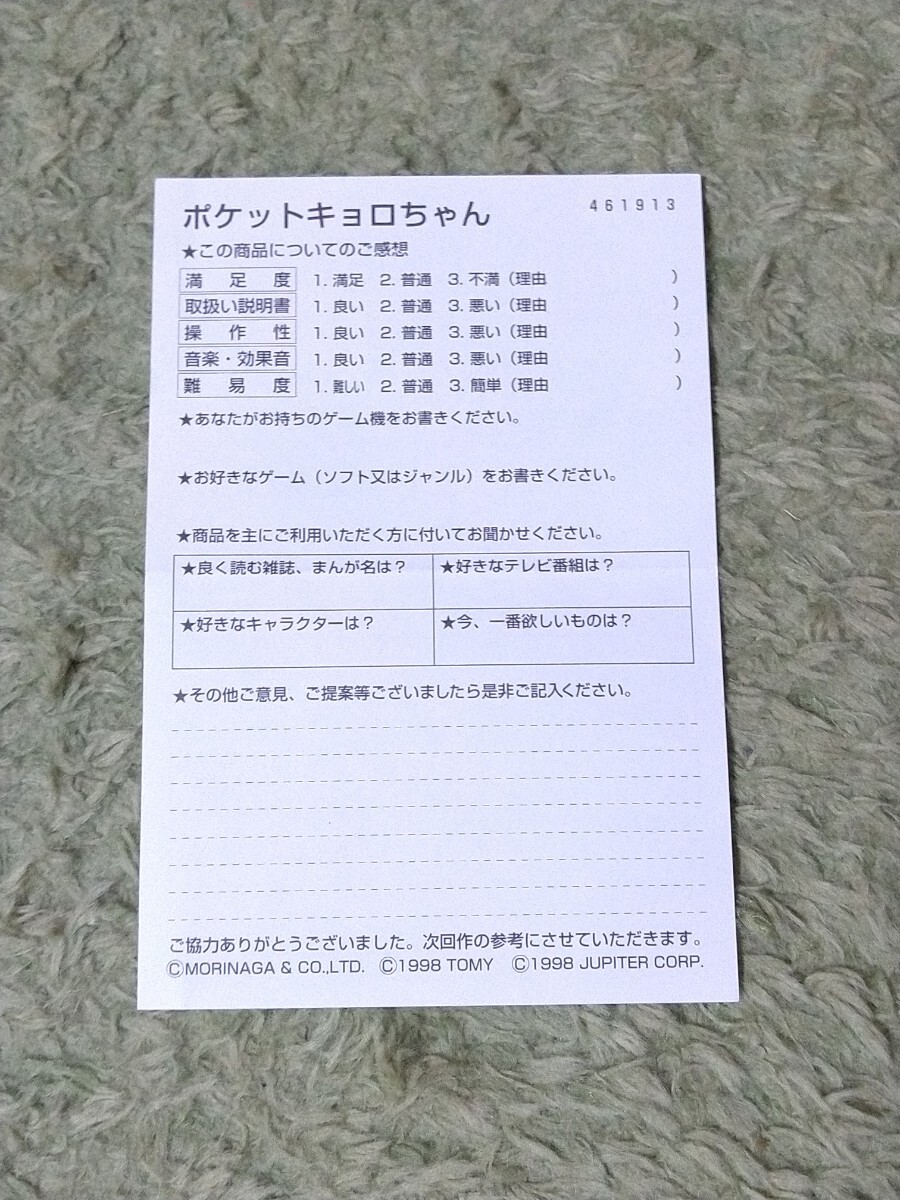 ポケットキョロちゃん 461913
★この商品についてのご感想
満足度 1. 満足 2. 普通 3. 不満（理由 ）
取扱い説明書 1. 良い 2. 普通 3. 悪い（理由 ）
操作性 1. 良い 2. 普通 3. 悪い（理由 ）
音楽・効果音 1. 良い 2. 普通 3. 悪い（理由 ）
難易度 1. 難しい 2. 普通 3. 簡単（理由 ）
★あなたがお持ちのゲーム機をお書きください。
★お好きなゲーム（ソフト又はジャンル）をお書きください。
★商品を主にご利用いただく方に付いてお聞かせください。
★良く読む雑誌、まんが名は？ ★好きなテレビ番組は？
★好きなキャラクターは？ ★今、一番欲しいものは？
★その他ご意見、ご提案等ございましたら是非ご記入ください。
ご協力ありがとうございました。次回作の参考にさせていただきます。
©MORINAGA & CO.,LTD. ©1998 TOMY ©1998 JUPITER CORP.